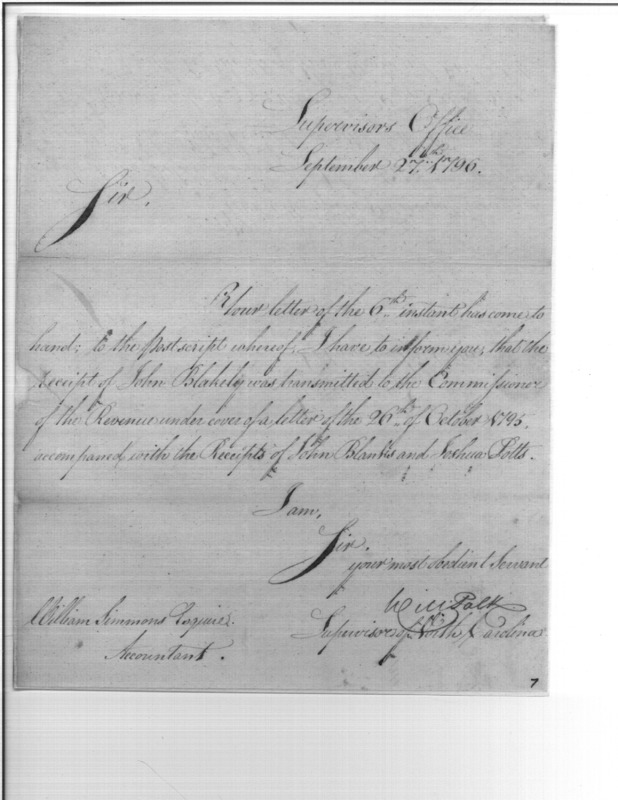 Supervisors Office
September 27th 1796.
Sir,
Your letter of the 6th instant has come to
hand; to the postscript whereof, I have to inform you, that the
Receipt of John Blakely was transmitted to the Commissioner
of the Revenue under cover of a letter of the 26th of October 1795,
accompaned with the Receipts of John Blanks and Joshua Potts.
I am,
Sir,
your most obedient Servant
Will Polk
Supervisor of North Carolina
William Simmons Esquire.
Accountant.
7